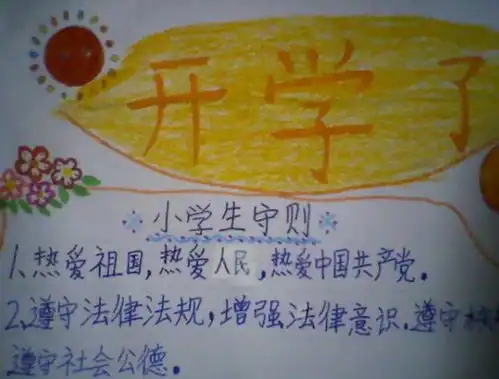 开学了
小学生守则
1、热爱祖国,热爱人民,热爱中国共产党.
2、遵守法律法规,增强法律意识.遵守
遵守社会公德。